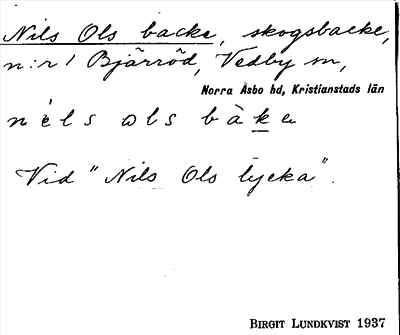 Nils Ols backe, skogsbacke,
n:r 1 Bjärröd, Vedby sn,
Norra Åsbo hd, Kristianstads län
nèls ols bàka
Vid "Nils Ols lycka".
BIRGIT LUNDKVIST 1937